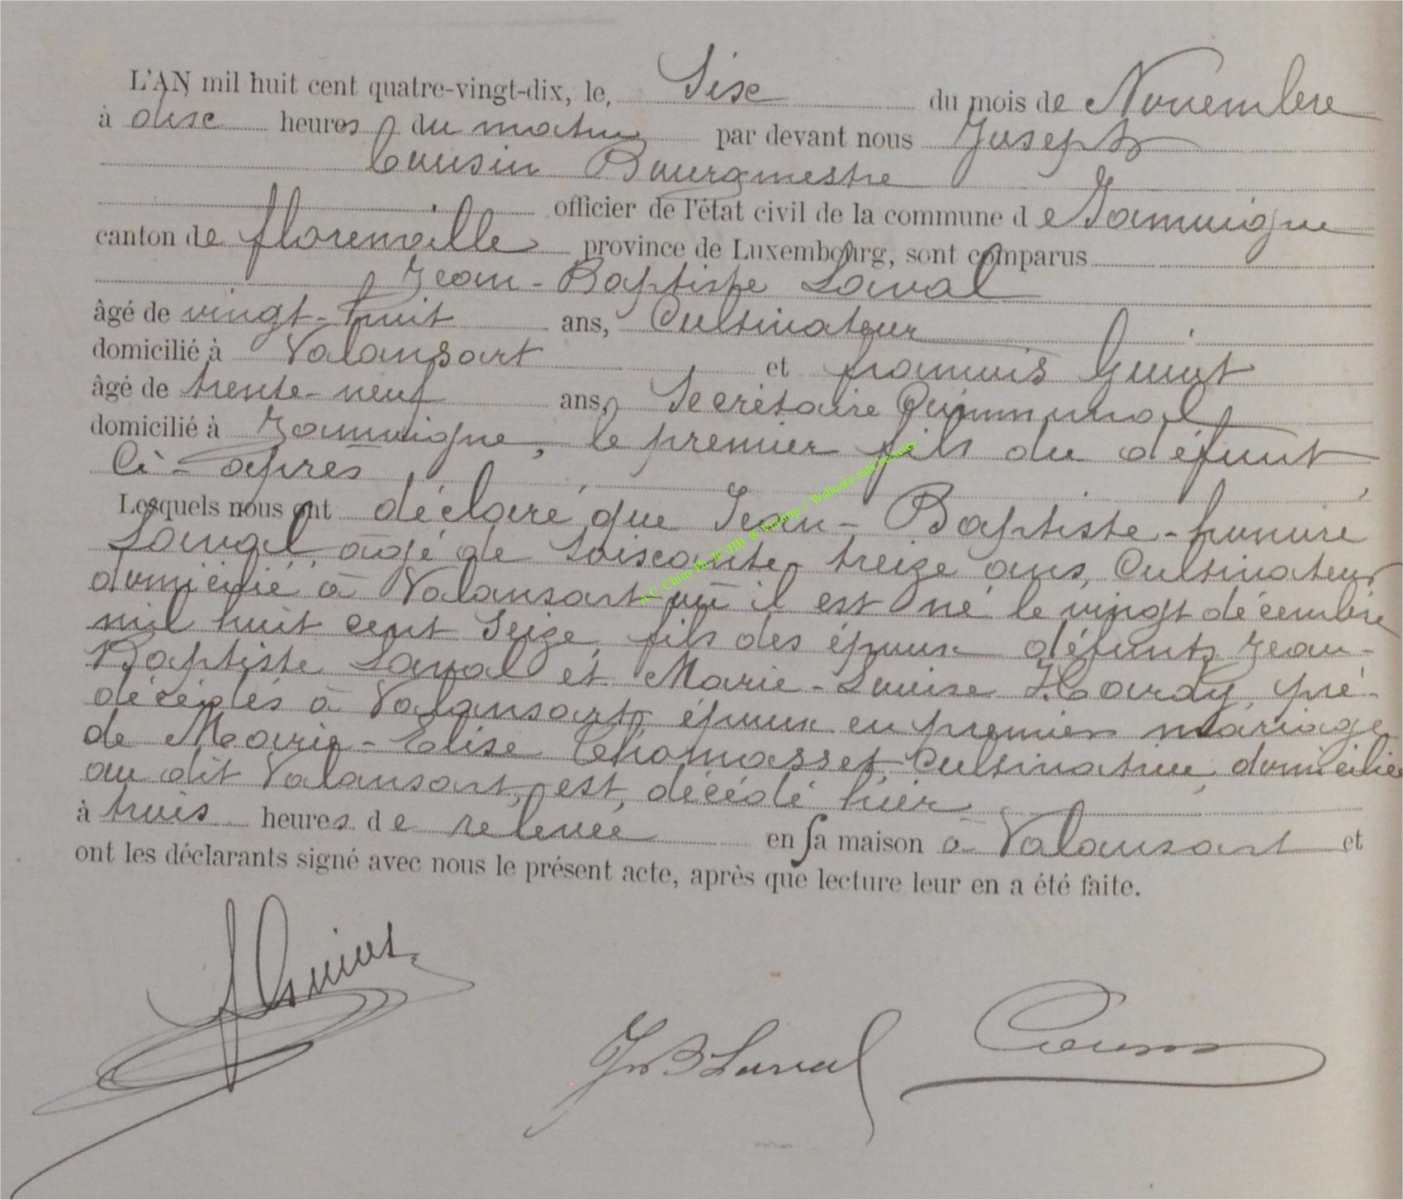 L'AN mil huit cent quatre-vingt-dix, le, Sise du mois de Novembre
à dise heures du matin par devant nous Joseph
Cousin Bourgmestre
officier de l'état civil de la commune d e Jamoigne
canton de florenville province de Luxembourg, sont comparus
Jean-Baptiste Laval
âgé de vingt-huit ans, Cultivateur
domicilié à Valansart et françois Guiot
âgé de trente-neuf ans, Secrétaire Communal
domicilié à Jamoigne, le premier fils du défunt
Ci-après
Lesquels nous ont déclaré que Jean-Baptiste-honoré
Laval, âgé de Soiscante treize ans, Cultivateur
domicilié à Valansart où il est né le vingt décembre
mil huit cent Seize, fils des époux défunts Jean-
Baptiste Laval et Marie-Louise Hardy, pré-
décédés à Valansart, époux en premier mariage
de Marie-Elise Thomasset Cultivatrice, domiciliée
au dit Valansart, est décédé hier
à trois heures de relevée en sa maison à Valansart et
ont les déclarants signé avec nous le présent acte, après que lecture leur en a été faite.
f Guiot
JB Laval Cousin